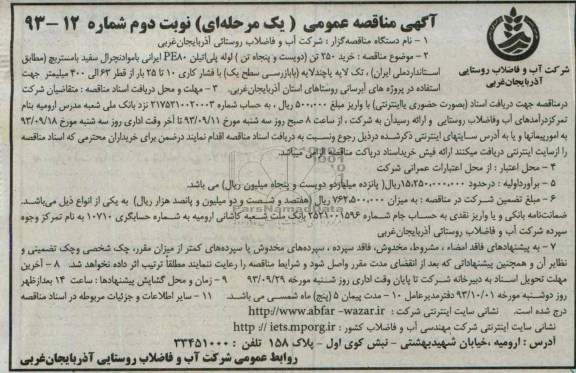 آگهی مناقصه عمومی (یک مرحله‌ای) نوبت دوم شماره ۱۲-۹۳
۱- نام دستگاه مناقصه‌گزار : شرکت آب و فاضلاب روستائی آذربایجان‌غربی
۲- موضوع مناقصه : خرید ۲۵۰ تن (دویست و پنجاه تن) لوله پلی‌اتیلن PE۸۰ ایرانی بامواد نچرال سفید بامستربچ (مطابق
استانداردملی ایران) ، تک لایه یاچندلایه (بابازرسی سطح یک) با فشار کاری ۱۰ تا ۲۵ بار از قطر ۶۳ الی ۴۰۰ میلیمتر جهت
استفاده در پروژه های آبرسانی روستاهای استان آذربایجان‌غربی. ۳- مهلت و محل دریافت اسناد مناقصه : متقاضیان شرکت
شرکت آب و فاضلاب روستایی
آذربایجان‌غربی
درمناقصه جهت دریافت اسناد (بصورت حضوری یااینترنتی) با واریز مبلغ ۵۰۰,۰۰۰ ریال ، به حساب شماره ۲۱۷۵۲۱۰۰۲۰۰۰۳ نزد بانک ملی شعبه مدرس ارومیه بنام
تمرکزدرآمدهای آب وفاضلاب روستایی و ارائه رسیدآن به شرکت ، از ساعت ۸ صبح روز سه شنبه مورخ ۹۳/۰۹/۱۱ تا آخر وقت اداری روز سه شنبه مورخ ۹۳/۰۹/۱۸
به امورپیمانها و یا به آدرس سایتهای اینترنتی ذکرشده درذیل رجوع ونسبت به دریافت اسناد مناقصه اقدام نمایند درضمن برای خریداران محترمی که اسناد مناقصه
را ازسایت اینترنتی دریافت میکنند ارائه فیش خریداسناد درپاکت مناقصه الزامی میباشد.
۴- محل اعتبار : از محل اعتبارات عمرانی شرکت
۵- برآورداولیه : درحدود ۱۵,۲۵۰,۰۰۰,۰۰۰ریال( پانزده میلیاردو دویست و پنجاه میلیون ریال) می باشد.
۶- مبلغ تضمین شرکت در مناقصه : به میزان ۷۶۲,۵۰۰,۰۰۰ ریال (هفتصد و شصت و دو میلیون و پانصد هزار ریال) به یکی از انواع ذیل می‌باشد.
ضمانت‌نامه بانکی و یا واریز نقدی به حساب جام شماره ۲۵۲۱۰۰۱۵۹۶ بانک ملت شعبه کاشانی ارومیه به شماره حسابگری ۱۰۷۱۰ به نام تمرکز وجوه
سپرده شرکت آب و فاضلاب روستایی آذربایجان‌غربی
۷- به پیشنهادهای فاقد امضاء ، مشروط، مخدوش، فاقد سپرده ، سپرده‌های مخدوش یا سپرده‌های کمتر از میزان مقرر، چک شخصی وچک تضمینی و
نظایر آن و همچنین پیشنهاداتی که بعد از انقضای مدت مقرر واصل شود و شرایط مناقصه را رعایت ننمایند مطلقاً ترتیب اثر داده نخواهد شد. ۸- آخرین
مهلت تحویل اسناد به دبیرخانه شرکت تا پایان وقت اداری روز شنبه مورخه ۹۳/۰۹/۲۹ ۹- زمان و محل گشایش پیشنهادها : ساعت ۱۴ بعدازظهر
روز دوشنبه مورخه ۹۳/۱۰/۰۱ دفترمدیرعامل ۱۰- مدت پیمان ۵ (پنج) ماه شمسی می باشد. ۱۱- سایر اطلاعات و جزئیات مربوطه در اسناد مناقصه
درج شده است. نشانی سایت اینترنتی شرکت : http://www.abfar-wazar.ir
نشانی سایت اینترنتی شرکت مهندسی آب و فاضلاب کشور : http://iets.mporg.ir
آدرس : ارومیه ،خیابان شهیدبهشتی - نبش کوی اول - پلاک ۱۵۸ تلفن : ۳۳۴۵۱۰۰۰
روابط عمومی شرکت آب و فاضلاب روستایی آذربایجان‌غربی